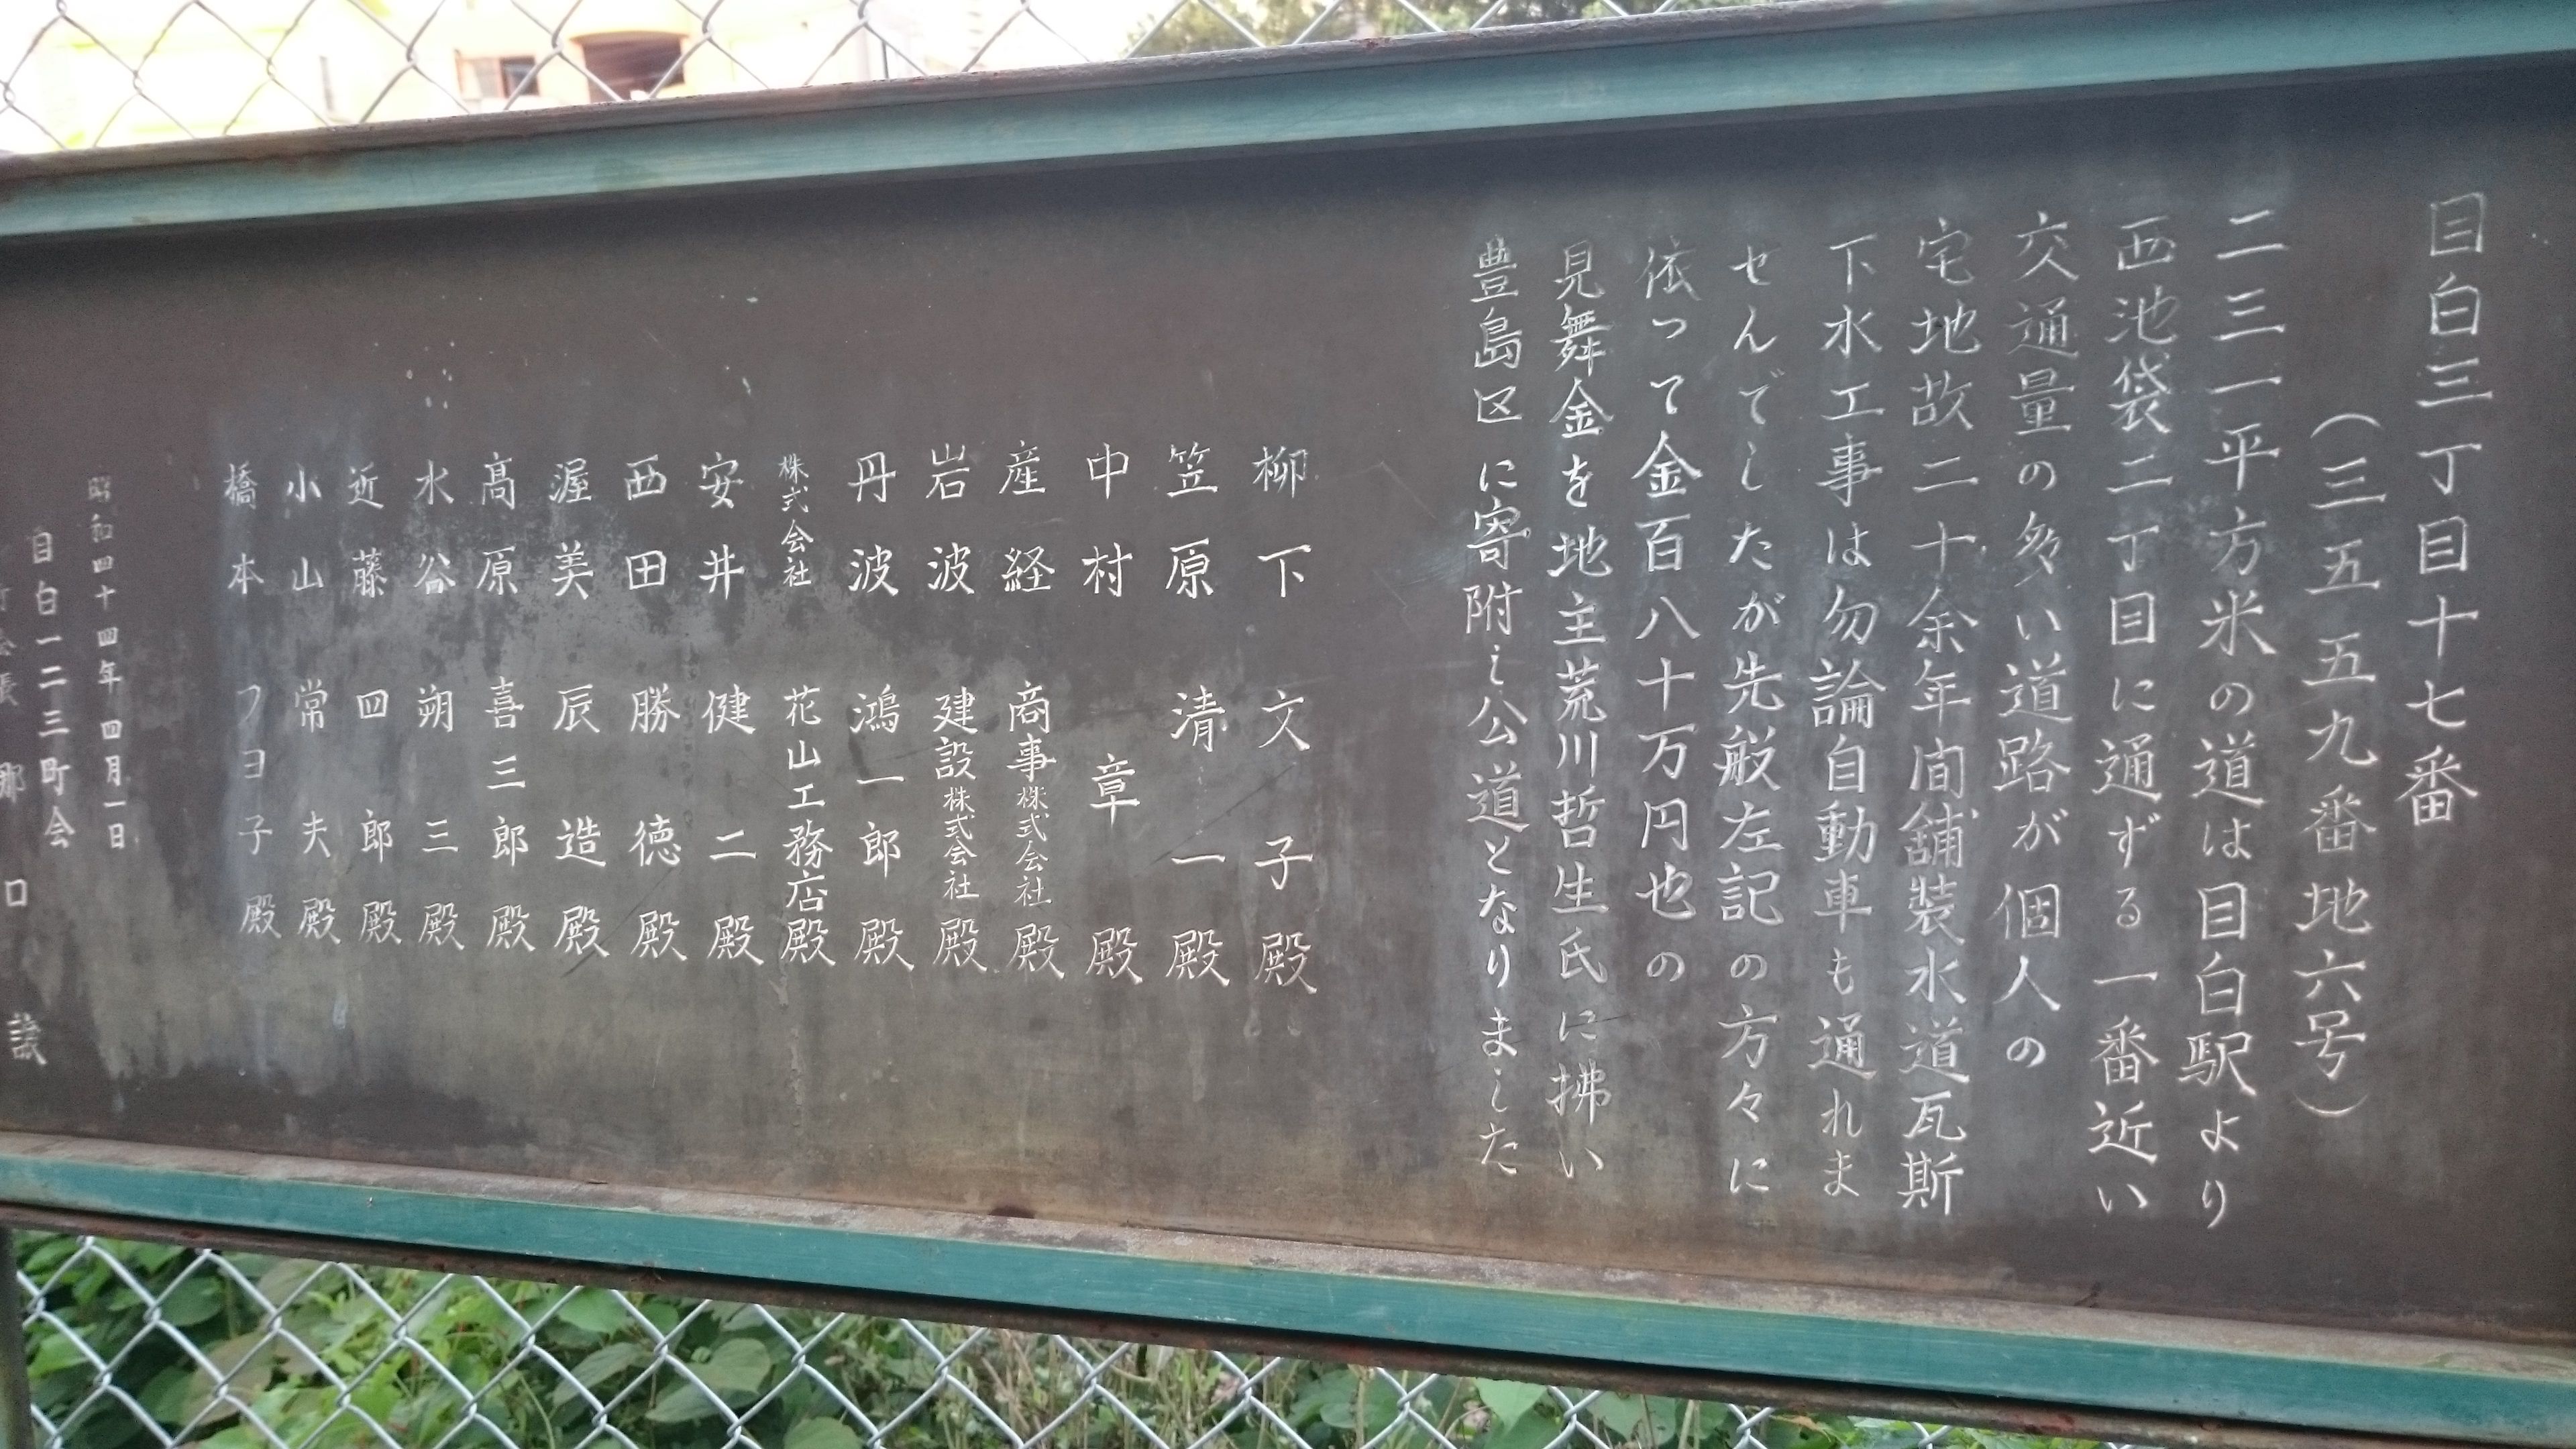 目白三丁目十七番
（三五五九番地六号）
二三一平方米の道は目白駅より
西池袋二丁目に通ずる一番近い
交通量の多い道路が個人の
宅地故二十余年間舗装水道瓦斯
下水工事は勿論自動車も通れま
せんでしたが先般左記の方々に
依って金百八十万円也の
見舞金を地主荒川哲生氏に拂い
豊島区に寄附し公道となりました
柳下文子殿
笠原清一殿
中村章殿
産経商事株式会社殿
岩波建設株式会社殿
丹波鴻一郎殿
株式会社花山工務店殿
安井健二殿
西田勝徳殿
渥美辰造殿
髙原喜三郎殿
水谷朔三殿
近藤四郎殿
小山常夫殿
橋本フヨ子殿
昭和四十四年四月一日
目白一二三町会